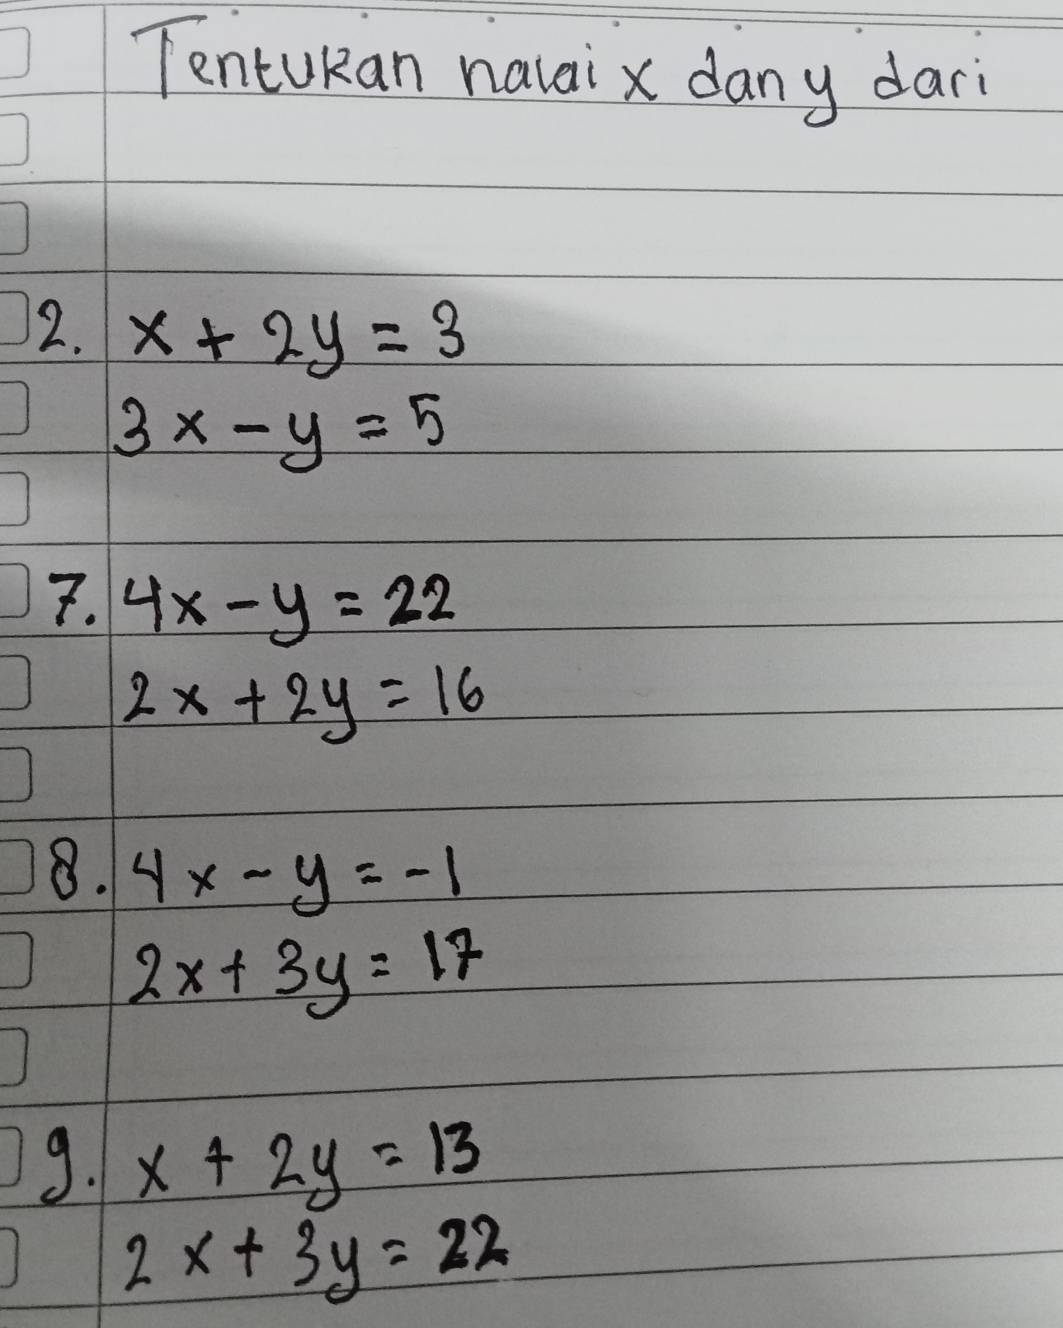 Tentukan nalai x dan y dari
2. x + 2y = 3
3x - y = 5
7. 4x - y = 22
2x + 2y = 16
8. 4x - y = -1
2x + 3y = 17
9. x + 2y = 13
2x + 3y = 22